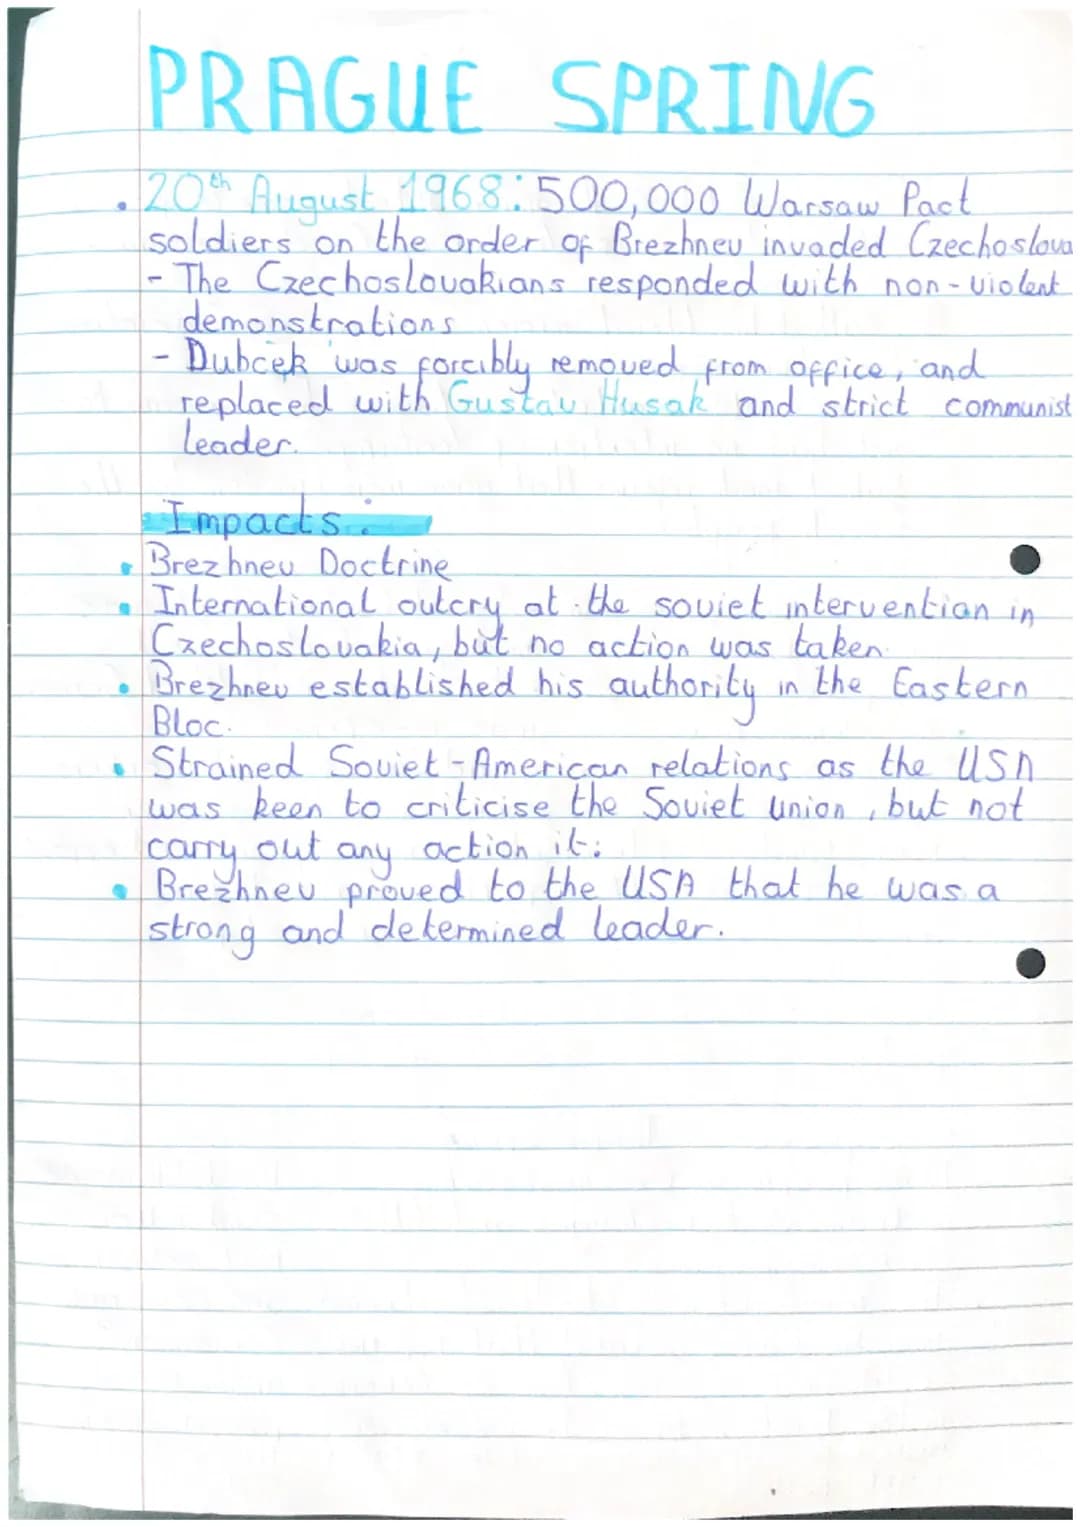 PRAGUE SPRING
• 20th August 1968: 500,000 Warsaw Pact
soldiers on the order of Brezhnev invaded Czechoslova
- The Czechoslovakians responded with non-violent
demonstrations
- Dubcek was forcibly removed from office, and
replaced with Gustav Husak and strict communist
leader.
Impacts:
• Brezhnev Doctrine
• International outcry at the soviet intervention in
Czechoslovakia, but no action was taken.
• Brezhnev established his authority in the Eastern
Bloc.
• Strained Soviet-American relations as the USA
was keen to criticise the Soviet union, but not
carry out any action it:
• Brezhnev proved to the USA that he was a
strong and determined leader.